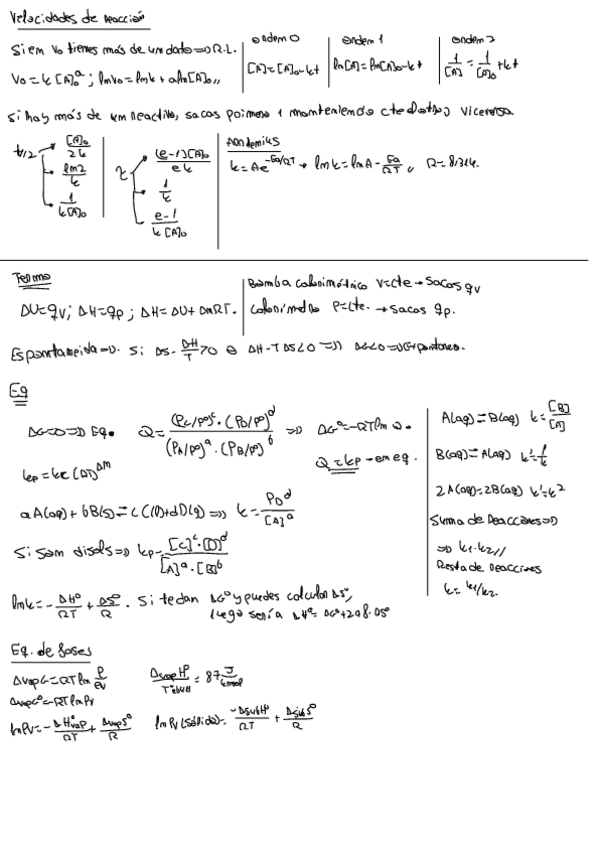 Velocidades de reacción
Si en v₀ tienes más de un dato => R.L.
v₀ = k [A]₀ᵃ ; ln v₀ = ln k + a ln [A]₀ //
orden 0
[A] = [A]₀ - kt
orden 1
ln[A] = ln[A]₀ - kt
orden 2
1/[A] = 1/[A]₀ + kt
Si hay más de un reactivo, sacas primero 1 manteniendo cte el otro y viceversa.
t1/2 → [A]₀/2k
→ ln2/k
→ 1/k[A]₀
τ → (e-1)[A]₀/ek
→ 1/k
→ e-1/k[A]₀
Arrhenius
k = Ae^-Ea/RT → ln k = ln A - Ea/RT, R = 8,314.
Termo
ΔU = qv ; ΔH = qp ; ΔH = ΔU + ΔnRT.
Bomba calorimétrica V = cte → sacas qv
Calorímetro P = cte. → sacas qp.
Espontaneidad => Si ΔS - ΔH/T > 0 o ΔH - TΔS < 0 => ΔG < 0 => Espontáneo.
Eq
ΔG = 0 => Eq.
Q = (Pc/Pº)ᶜ · (PD/Pº)ᵈ / (PA/Pº)ᵃ · (PB/Pº)ᵇ => ΔGº = -RT ln Q.
Q = kp - en eq.
kp = kc (RT)^Δn
aA(aq) + bB(s) ⇌ cC(l) + dD(g) => k = PDᵈ/[A]ᵃ
Si son disols => kp = [C]ᶜ · [D]ᵈ / [A]ᵃ · [B]ᵇ
ln k = - ΔHº/RT + ΔSº/R . Si te dan ΔGº y puedes calcular ΔSº,
luego sería ΔHº = ΔGº + 298 · ΔSº
A(aq) ⇌ B(aq) k = [B]/[A]
B(aq) ⇌ A(aq) k' = 1/k
2A(aq) ⇌ 2B(aq) k' = k²
Suma de reacciones =>
=> k₁ · k₂ //
Resta de reacciones
k = k₁/k₂.
Eq. de fases
ΔvapG = RT ln P/Pv
ΔvapGº = -RT ln Pv
ΔvapHº/Tºebull = 87 J/kmol
ln Pv = - ΔHºvap/RT + ΔvapSº/R
ln Pv (sólido) = -ΔsubHº/RT + ΔsubSº/R